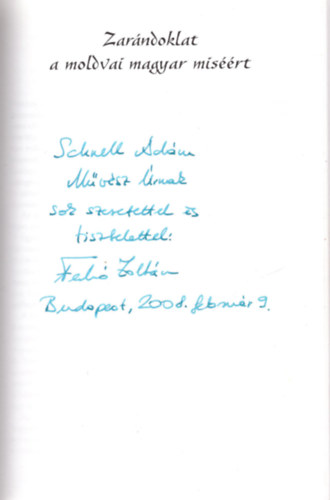 Zarándoklat
a moldvai magyar miséért
Schnell Ádám
Művész Úrnak
sok szeretettel és
tisztelettel:
Zoltán
Budapest, 2008. február 9.